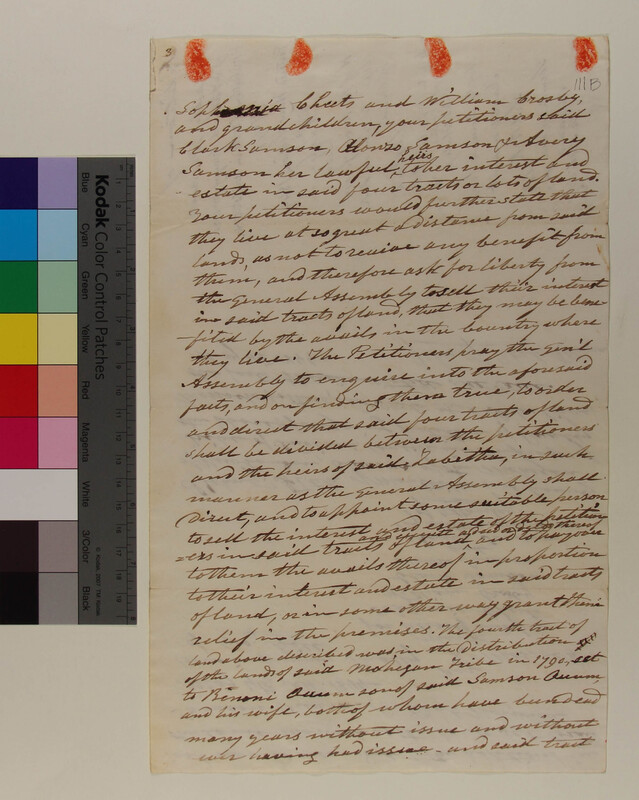 3
111B
Sophronia Cheets and William Crosby,
and grandchildren, your petitioners said
Clark Samson, Alonzo Samson & Avery
Samson her lawful heirs to her interest and
estate in said four tracts or lots of land.
Your petitioners would further state that
they live at so great a distance from said
lands, as not to receive any benefit from
them, and therefore ask for liberty from
the General Assembly to sell their interest
in said tracts of land, that they may be bene-
fited by the avails in the Country where
they live. The Petitioners pray the Gen'l
Assembly to enquire into the aforesaid
facts, and on finding them true, to order
and direct that said four tracts of land
shall be divided between the petitioners
and the heirs of said Tabitha, in such
manner as the General Assembly shall
Direct, and to appoint some suitable person
to sell the interest and estate of the petition
=ers in said tracts of land and to pay over
to them the avails thereof in proportion
to their interest and estate in said tracts
of land, or in some other way grant them
relief in the premises. The fourth tract of
land above described was in the distribution
of the lands of said Mohegan Tribe in 1790, set
to Benoni Occum son of said Samson Occum,
and his wife, both of whom have been dead
many years without issue and without
ever having had issue - and said tract
Kodak
Color Control Patches
Blue
Cyan
Green
Yellow
Red
Magenta
White
3/Color
Black
© Kodak, 2007 TM: Kodak